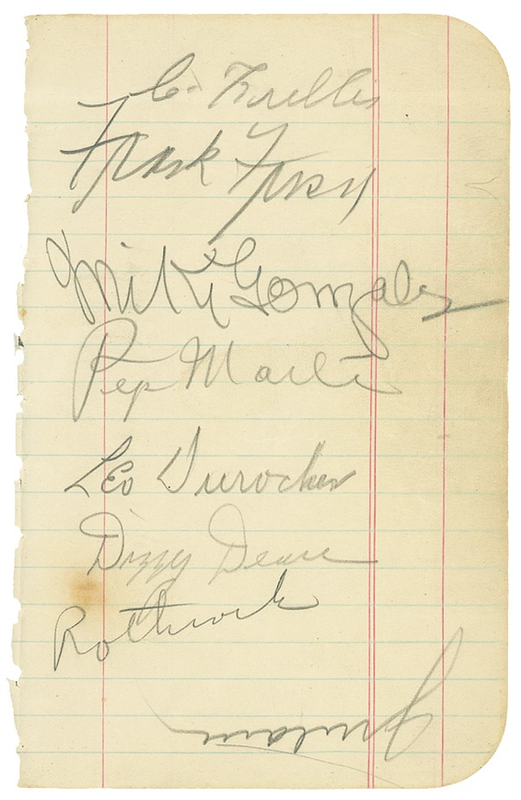 C. Fullis
Frank Frisch
Mike Gonzalez
Pep Martin
Leo Durocher
Dizzy Dean
Rothrock